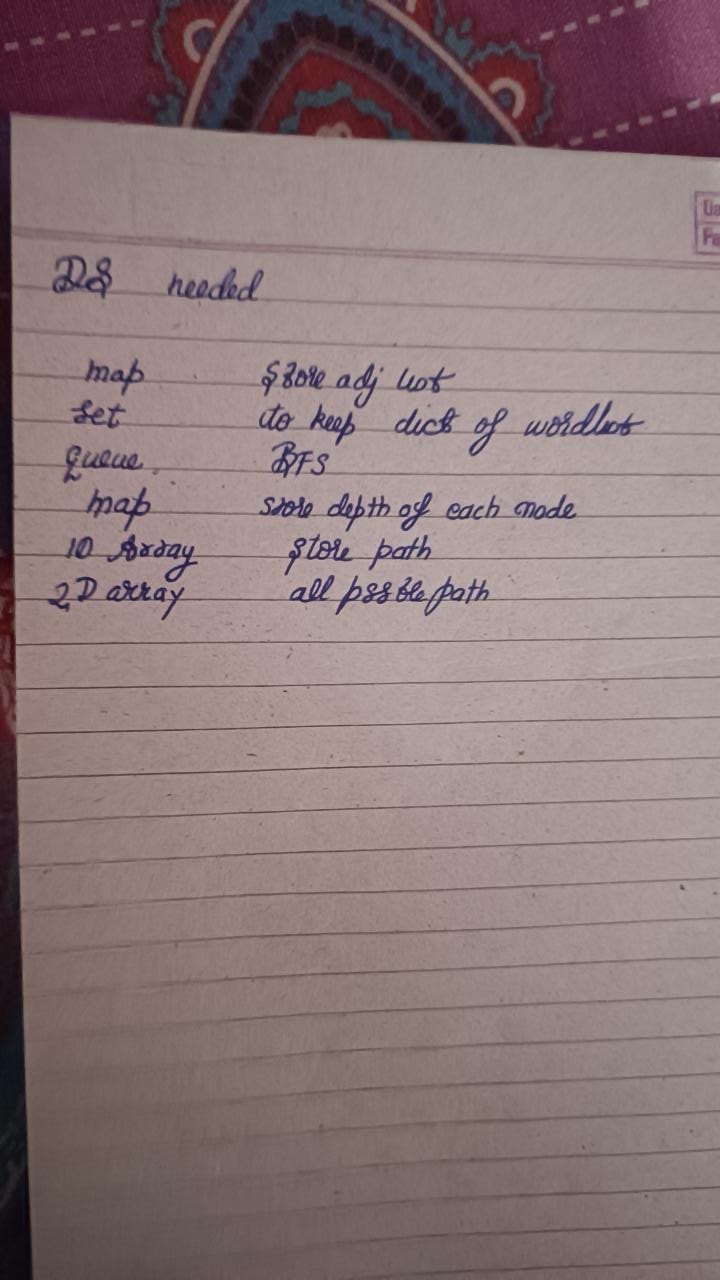 DS needed
map store adj list
set to keep dict of wordlist
queue. BFS
map store depth of each node
1D Array store path
2D array all pssble path